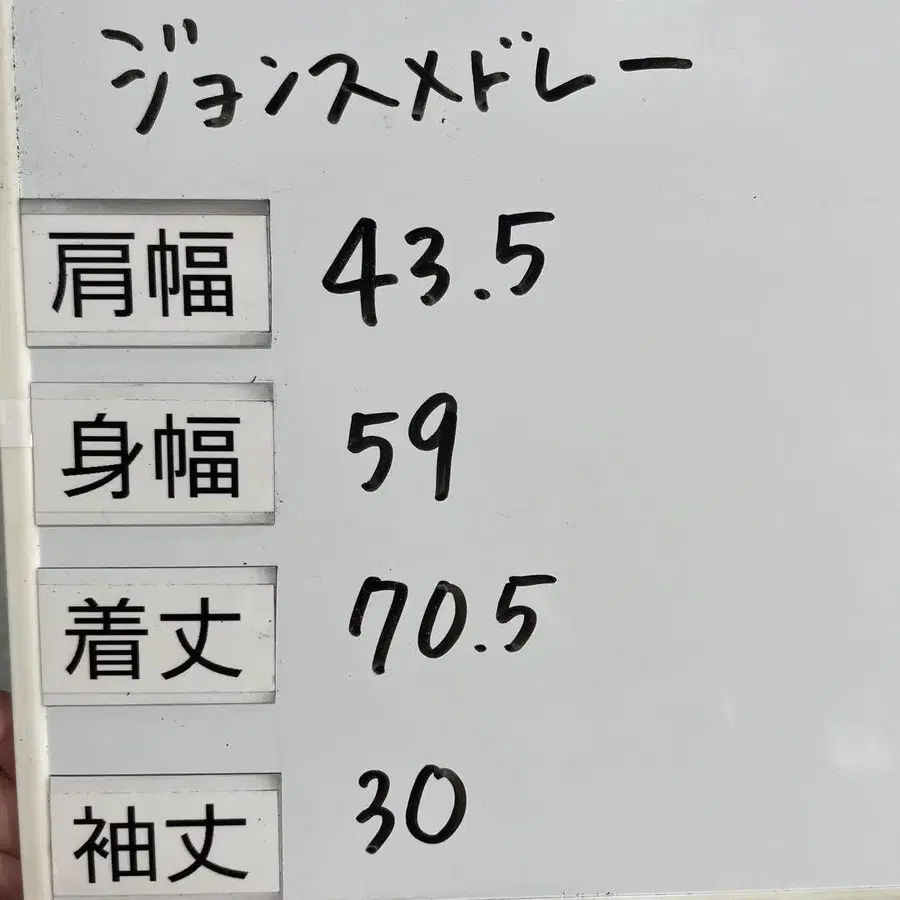 ジョンスメドレー
肩幅 43.5
身幅 59
着丈 70.5
袖丈 30